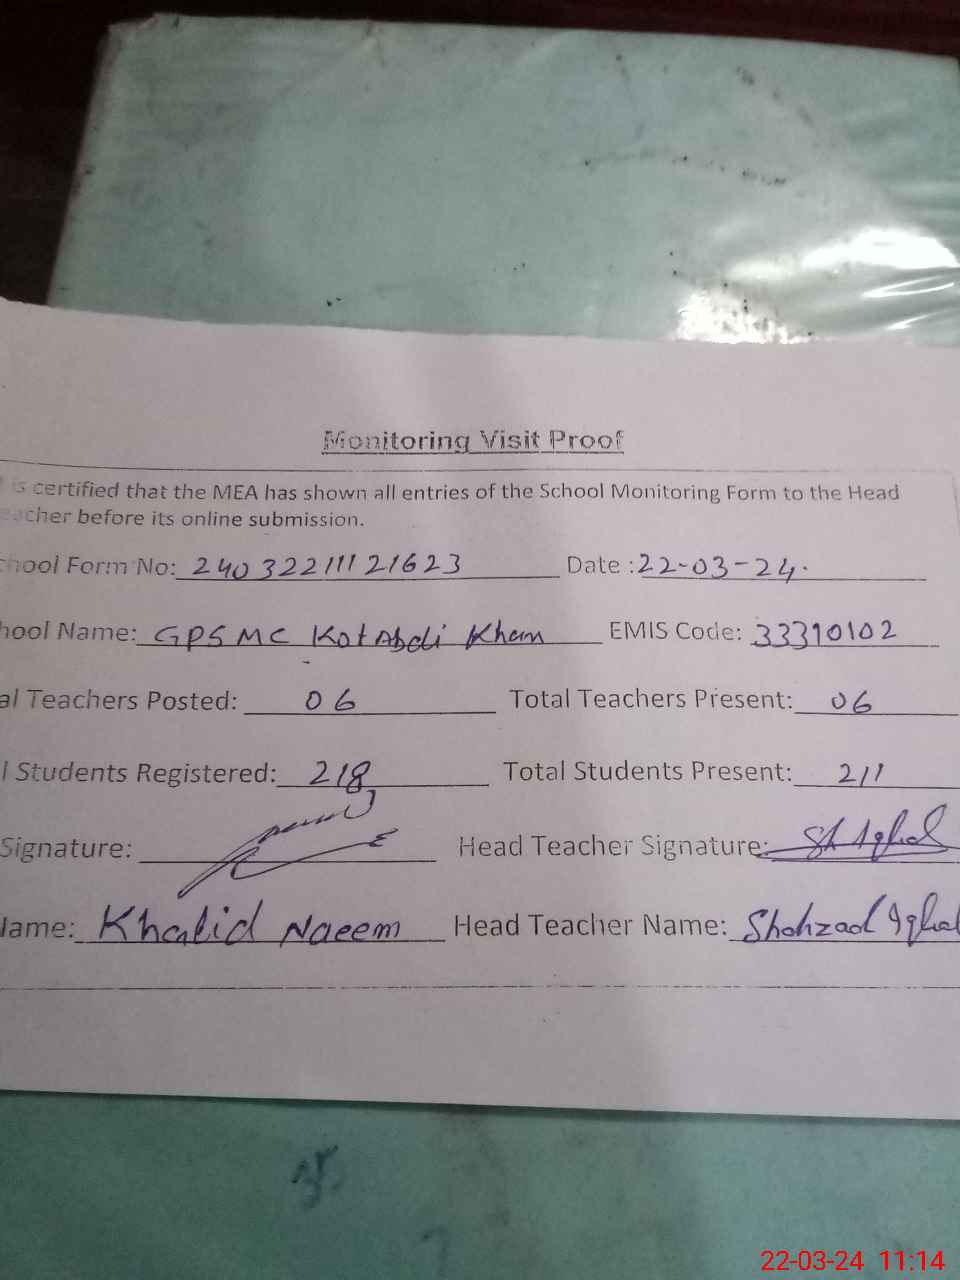 Monitoring Visit Proof
is certified that the MEA has shown all entries of the School Monitoring Form to the Head
eacher before its online submission.
chool Form No: 24032211121623 Date : 22-03-24.
hool Name: GPS MC Kot Abdi Khan EMIS Code: 33310102
al Teachers Posted: 06 Total Teachers Present: 06
l Students Registered: 218 Total Students Present: 211
Signature: Head Teacher Signature: Sh Iqbal
Name: Khalid Naeem Head Teacher Name: Shahzad Iqbal
22-03-24 11:14